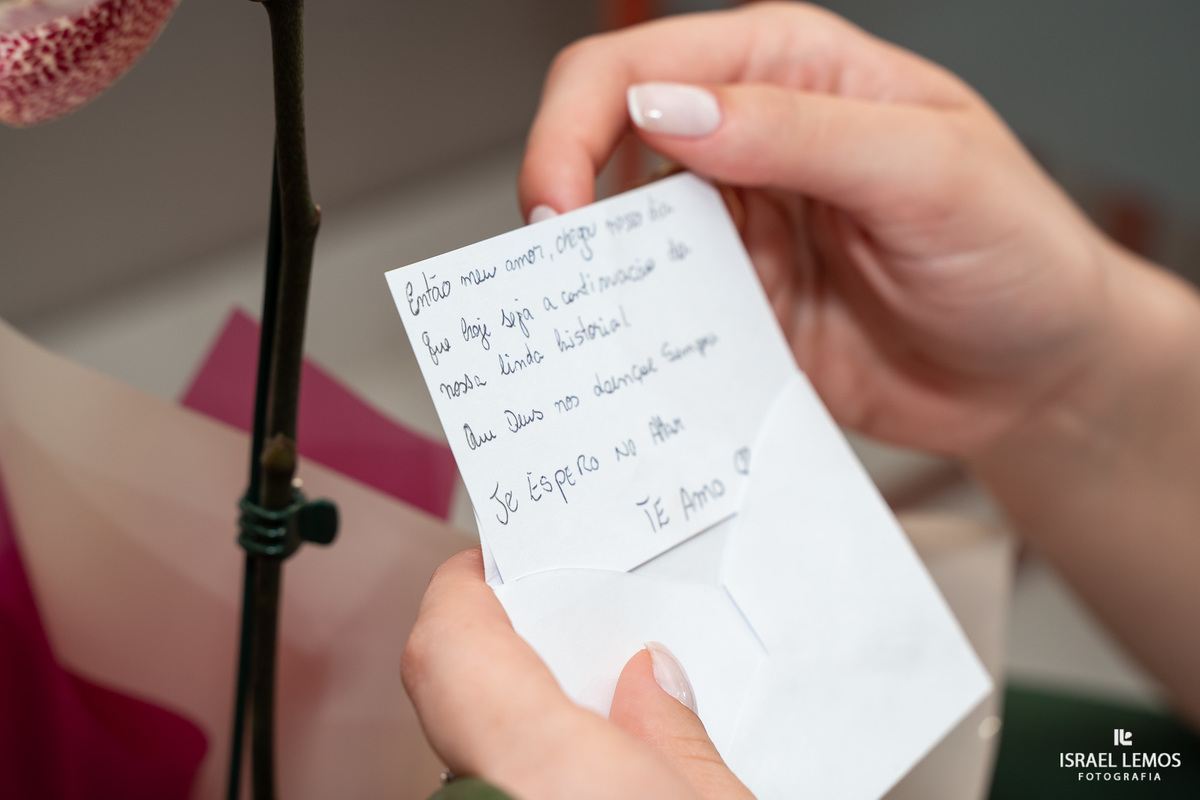 Então meu amor, chegu nosso dia
Que hoje seja a continuacão da
nossa linda historia!
Que Deus nos abençoe Sempre
Te ESPERO NO Altar
TE Amo
ISRAEL LEMOS
FOTOGRAFIA